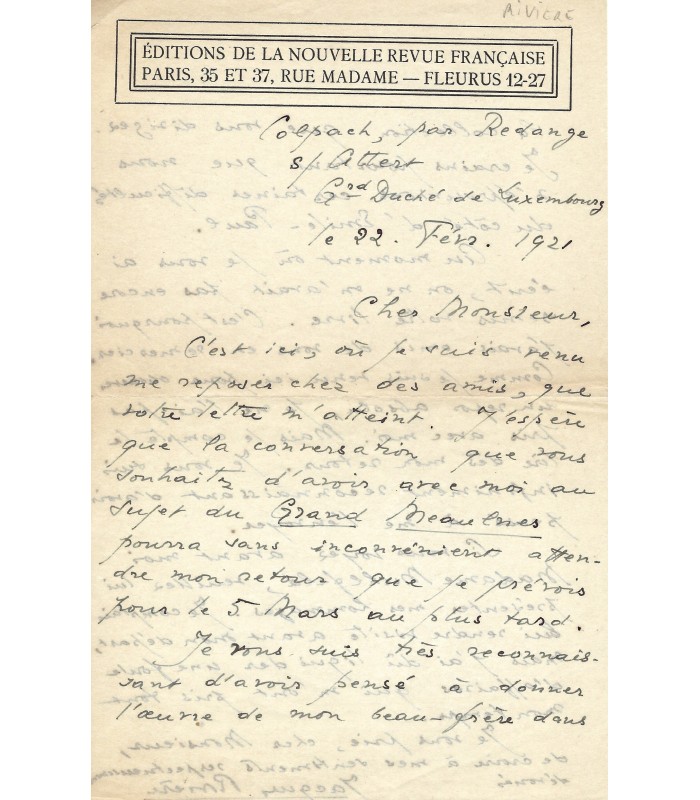 RIVIERE
ÉDITIONS DE LA NOUVELLE REVUE FRANÇAISE
PARIS, 35 ET 37, RUE MADAME — FLEURUS 12-27
Colpach, par Redange
s/ Attert
Grd Duché de Luxembourg
le 22. Févr. 1921
Cher Monsieur,
C'est ici, où je suis venu
me reposer chez des amis, que
votre lettre m'atteint. J'espère
que la conversation que vous
souhaitez d'avoir avec moi au
sujet du Grand Meaulnes
pourra sans inconvénient atten-
dre mon retour que je prévois
pour le 5 Mars au plus tard.
Je vous suis très reconnais-
sant d'avoir pensé à donner
l'œuvre de mon beau-frère dans